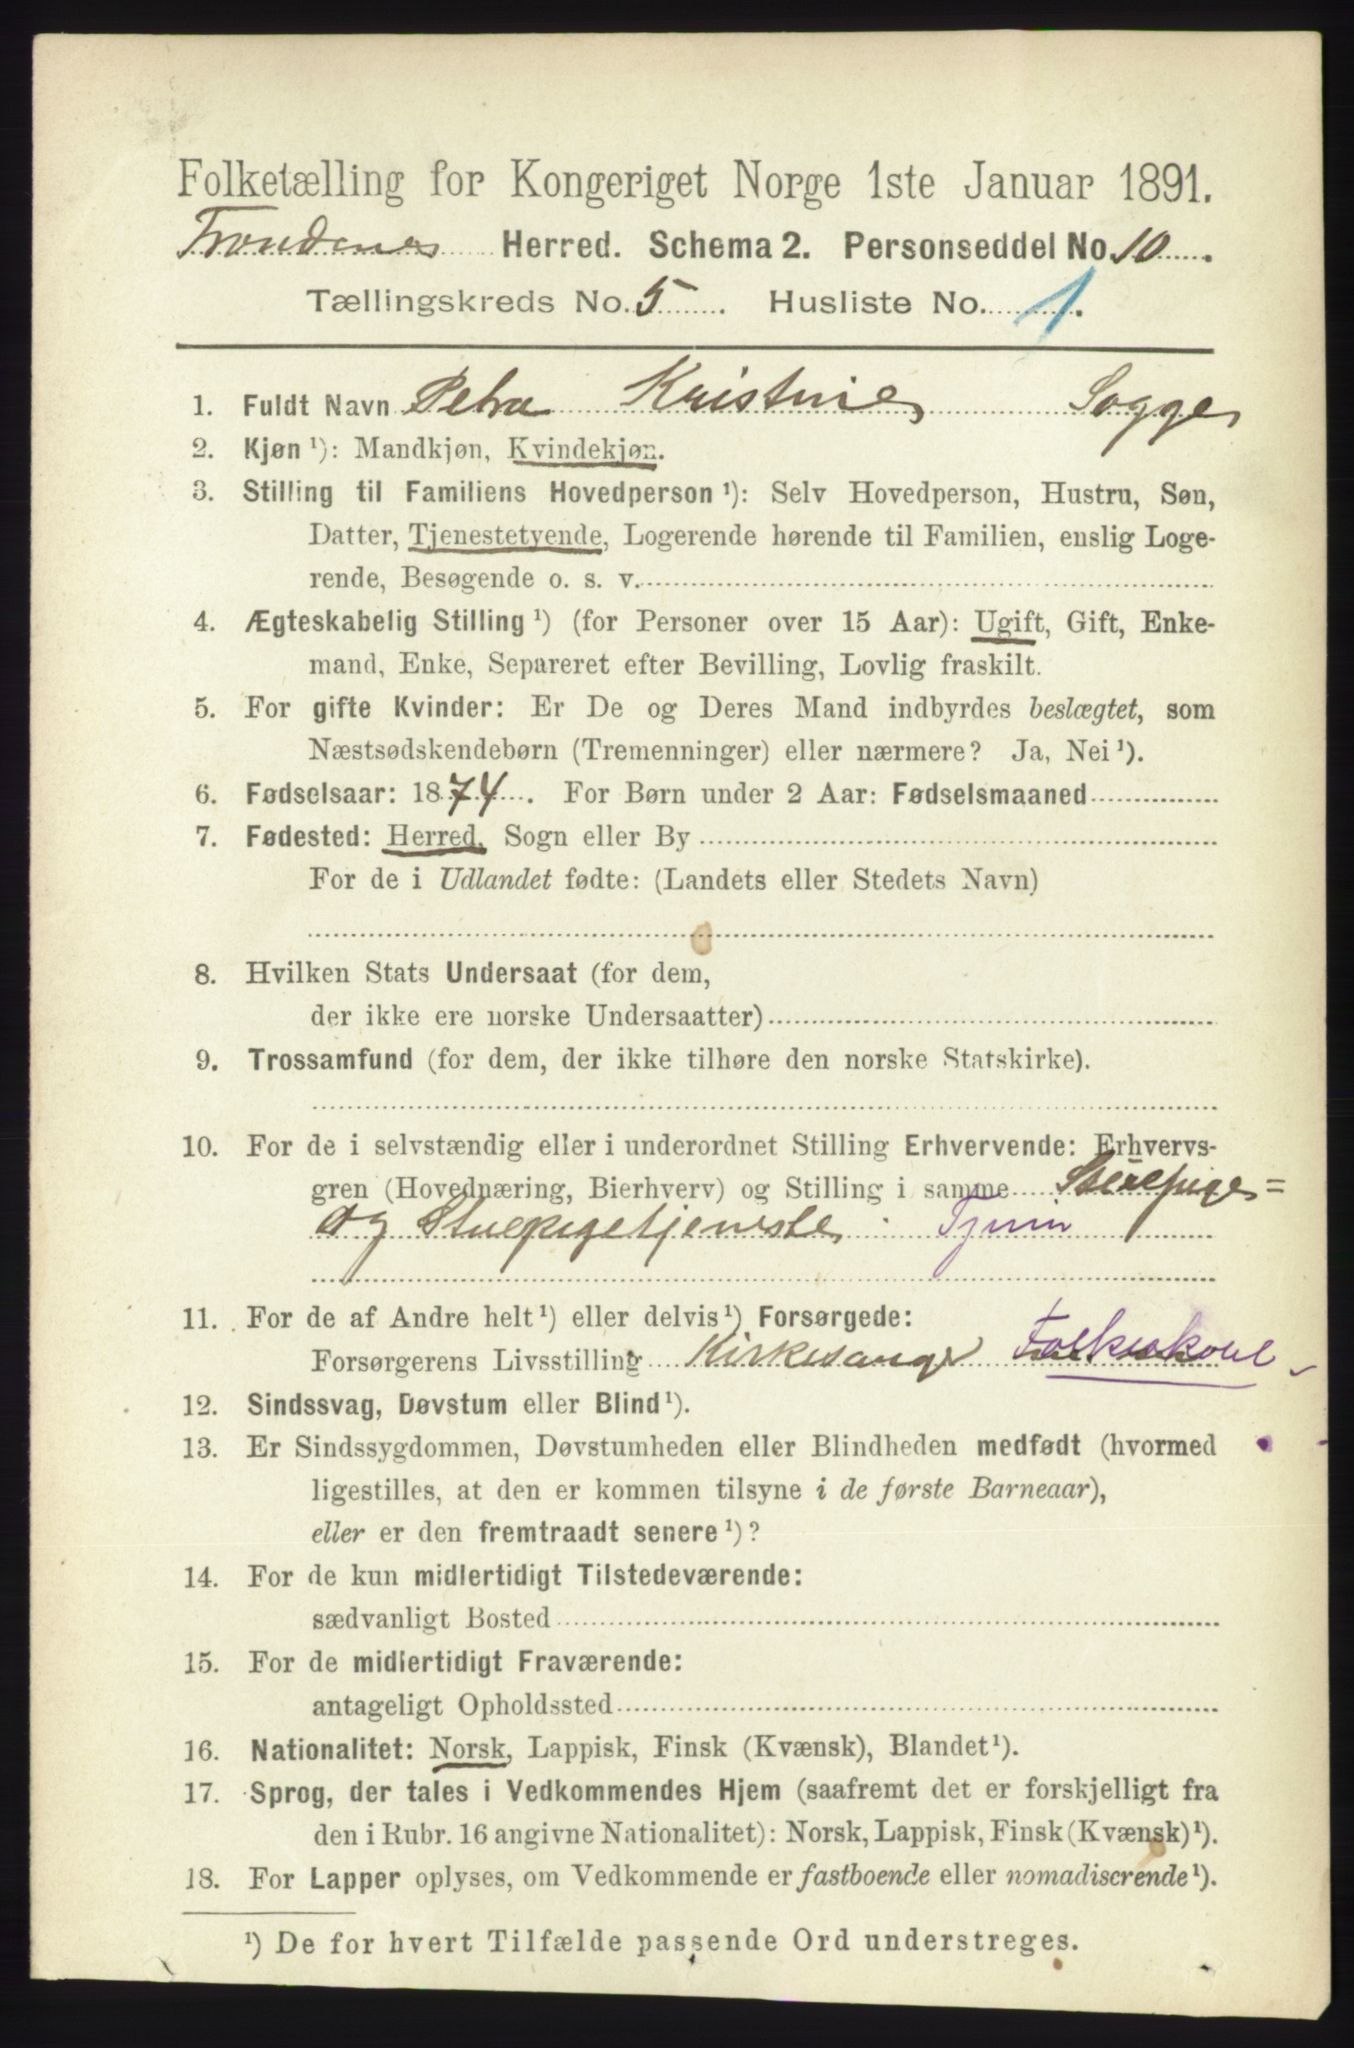 Folketælling for Kongeriget Norge 1ste Januar 1891.
Trondenes Herred. Schema 2. Personseddel No. 10.
Tællingskreds No. 5. Husliste No. 1.
1. Fuldt Navn Petra Kristine Sogge
2. Kjøn ¹): Mandkjøn, Kvindekjøn.
3. Stilling til Familiens Hovedperson ¹): Selv Hovedperson, Hustru, Søn,
Datter, Tjenestetyende, Logerende hørende til Familien, enslig Loge-
rende, Besøgende o. s. v.
4. Ægteskabelig Stilling ¹) (for Personer over 15 Aar): Ugift, Gift, Enke-
mand, Enke, Separeret efter Bevilling, Lovlig fraskilt.
5. For gifte Kvinder: Er De og Deres Mand indbyrdes beslægtet, som
Næstsødskendebørn (Tremenninger) eller nærmere? Ja, Nei ¹).
6. Fødselsaar: 1874. For Børn under 2 Aar: Fødselsmaaned
7. Fødested: Herred, Sogn eller By
For de i Udlandet fødte: (Landets eller Stedets Navn)
8. Hvilken Stats Undersaat (for dem,
der ikke ere norske Undersaatter)
9. Trossamfund (for dem, der ikke tilhøre den norske Statskirke).
10. For de i selvstændig eller i underordnet Stilling Erhvervende: Erhvervs-
gren (Hovednæring, Bierhverv) og Stilling i samme
og Stuepigetjeneste
11. For de af Andre helt ¹) eller delvis ¹) Forsørgede:
Forsørgerens Livsstilling Kirkesanger Folkeskol
12. Sindssvag, Døvstum eller Blind ¹).
13. Er Sindssygdommen, Døvstumheden eller Blindheden medfødt (hvormed
ligestilles, at den er kommen tilsyne i de første Barneaar),
eller er den fremtraadt senere ¹)?
14. For de kun midlertidigt Tilstedeværende:
sædvanligt Bosted
15. For de midlertidigt Fraværende:
antageligt Opholdssted
16. Nationalitet: Norsk, Lappisk, Finsk (Kvænsk), Blandet ¹).
17. Sprog, der tales i Vedkommendes Hjem (saafremt det er forskjelligt fra
den i Rubr. 16 angivne Nationalitet): Norsk, Lappisk, Finsk (Kvænsk) ¹).
18. For Lapper oplyses, om Vedkommende er fastboende eller nomadiserende ¹).
¹) De for hvert Tilfælde passende Ord understreges.